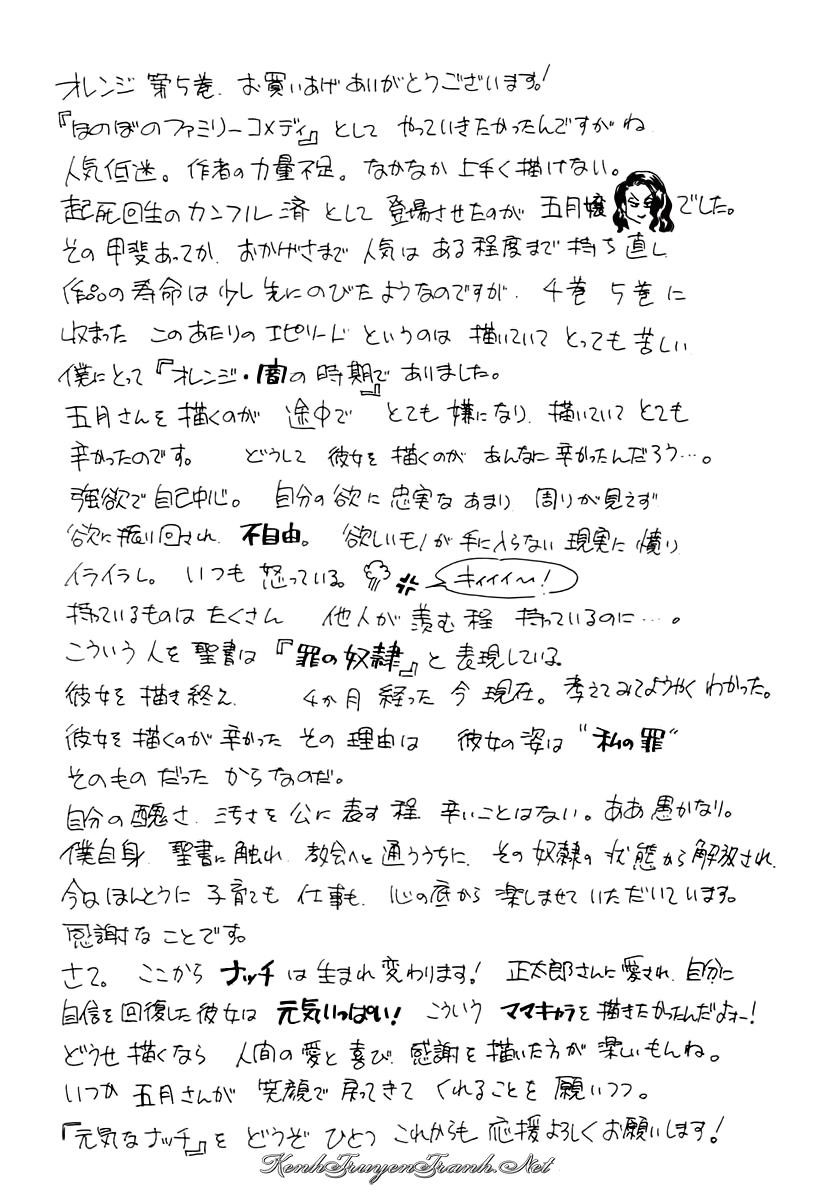 オレンジ 第5巻、お買いあげ ありがとうございます!
『ほのぼのファミリーコメディ』として やっていきたかったんですがね
人気低迷。作者の力量不足。なかなか上手く描けない。
起死回生のカンフル済 として 登場させたのが 五月嬢 でした。
その甲斐あってか、おかげさまで 人気は ある程度まで 持ち直し
作品の寿命は少し先にのびたようなのですが、4巻 5巻に
収まった このあたりの エピソード というのは 描いていて とっても 苦しい
僕にとって『オレンジ・闇の時期』で ありました。
五月さんを描くのが 途中で とても 嫌になり、描いていて とても
辛かったのです。 どうして 彼女を 描くのが あんなに 辛かったんだろう…。
強欲で自己中心。自分の欲に 忠実な あまり 周りが見えず
欲に振り回され、不自由。欲しいモノが 手に入らない 現実に 憤り
イライラし。いつも 怒っている。 キィィィ〜!
持っているものは たくさん 他人が 羨む程 持っているのに…。
こういう人を 聖書は『罪の奴隷』と 表現している
彼女を 描き終え、 4か月 経った 今 現在。考えてみてようやく わかった。
彼女を 描くのが 辛かった その 理由は 彼女の姿は “私の罪”
そのもの だった からなのだ。
自分の醜さ、汚さを 公に 表す程 辛いことはない。ああ 愚かなり。
僕自身、聖書に触れ、教会へと 通ううちに、その奴隷の 状態から 解放され、
今は ほんとうに 子育ても 仕事も、心の底から 楽しませて いただいています。
感謝な ことです。
さて。ここから ナッチ は 生まれ変わります! 正太郎さんに愛され、自分に
自信を回復した彼女は 元気いっぱい! こういう ママキャラを 描きたかったんだよォー!
どうせ 描くなら 人間の愛と 喜び、感謝を 描いた方が 楽しいもんね。
いつか 五月さんが 笑顔で 戻ってきて くれることを 願いつつ。
『元気なナッチ』を どうぞ ひとつ これからも 応援よろしくお願いします!
KenhTruyenTranh.Net